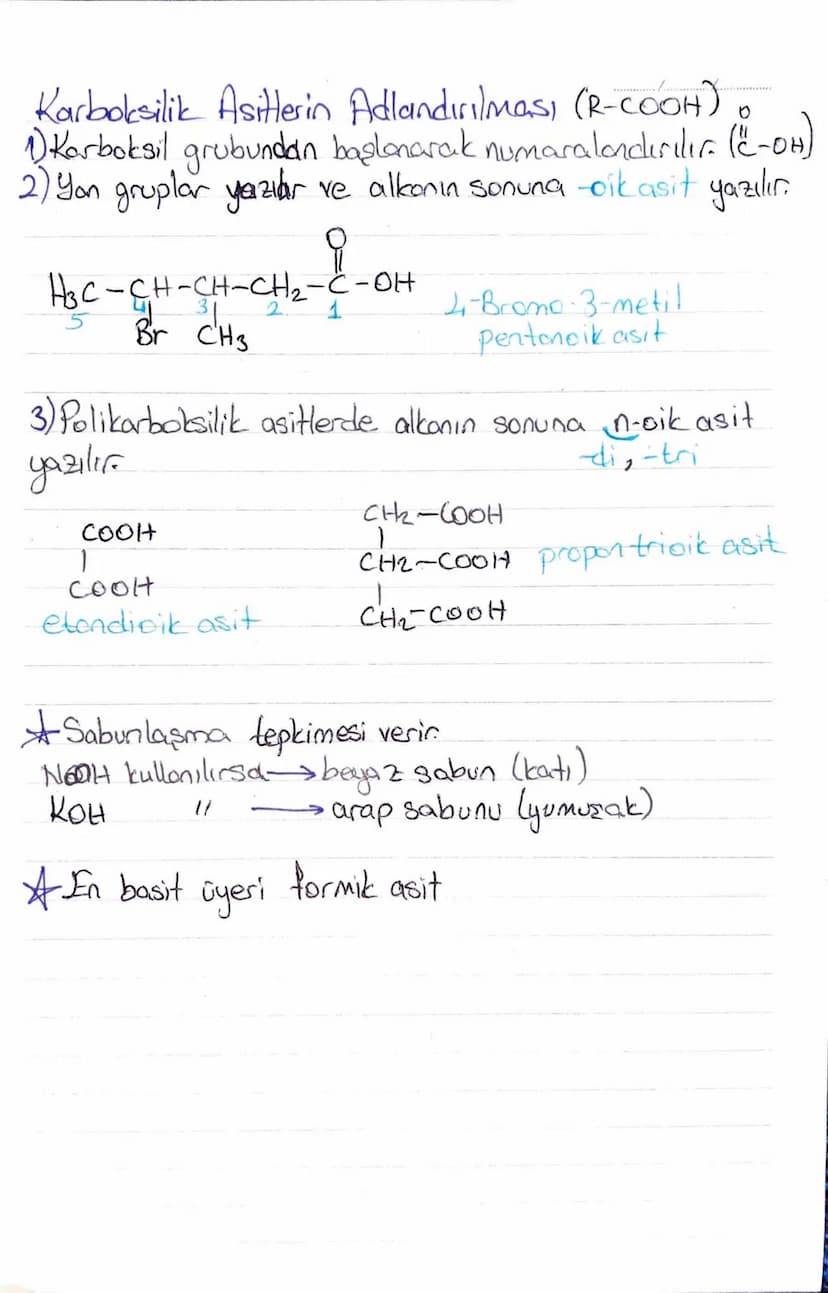 Karboksilik Asitlerin Adlandırılması (R-COOH)
O
1) Karboksil grubundan başlanarak numaralandırılır. (C-OH)
2) Yan gruplar yazılır ve alkanın sonuna -oik asit yazılır.
O
H3C-CH-CH-CH2-C-OH
5 4 3 2 1
Br CH3
4-Bromo-3-metil
pentanoik asit
3) Polikarboksilik asitlerde alkanın sonuna n-oik asit
yazılır.
-di, -tri
COOH
COOH
etandioik asit
CH2-COOH
CH2-COOH
CH2-COOH
propantrioik asit
Sabunlaşma tepkimesi verir.
NaOH kullanılırsa→beyaz sabun (katı)
KOH " → arap sabunu (yumuşak)
En basit üyeri formik asit